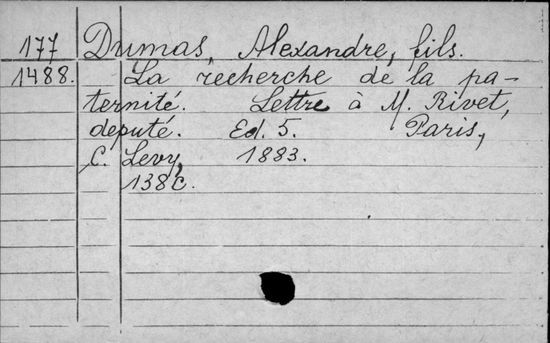 177 Dumas, Alexandre, fils.
1488. La recherche de la pa-
ternité. Lettre à M. Rivet,
deputé. Ed. 5. Paris,
C. Levy, 1883.
138 c.